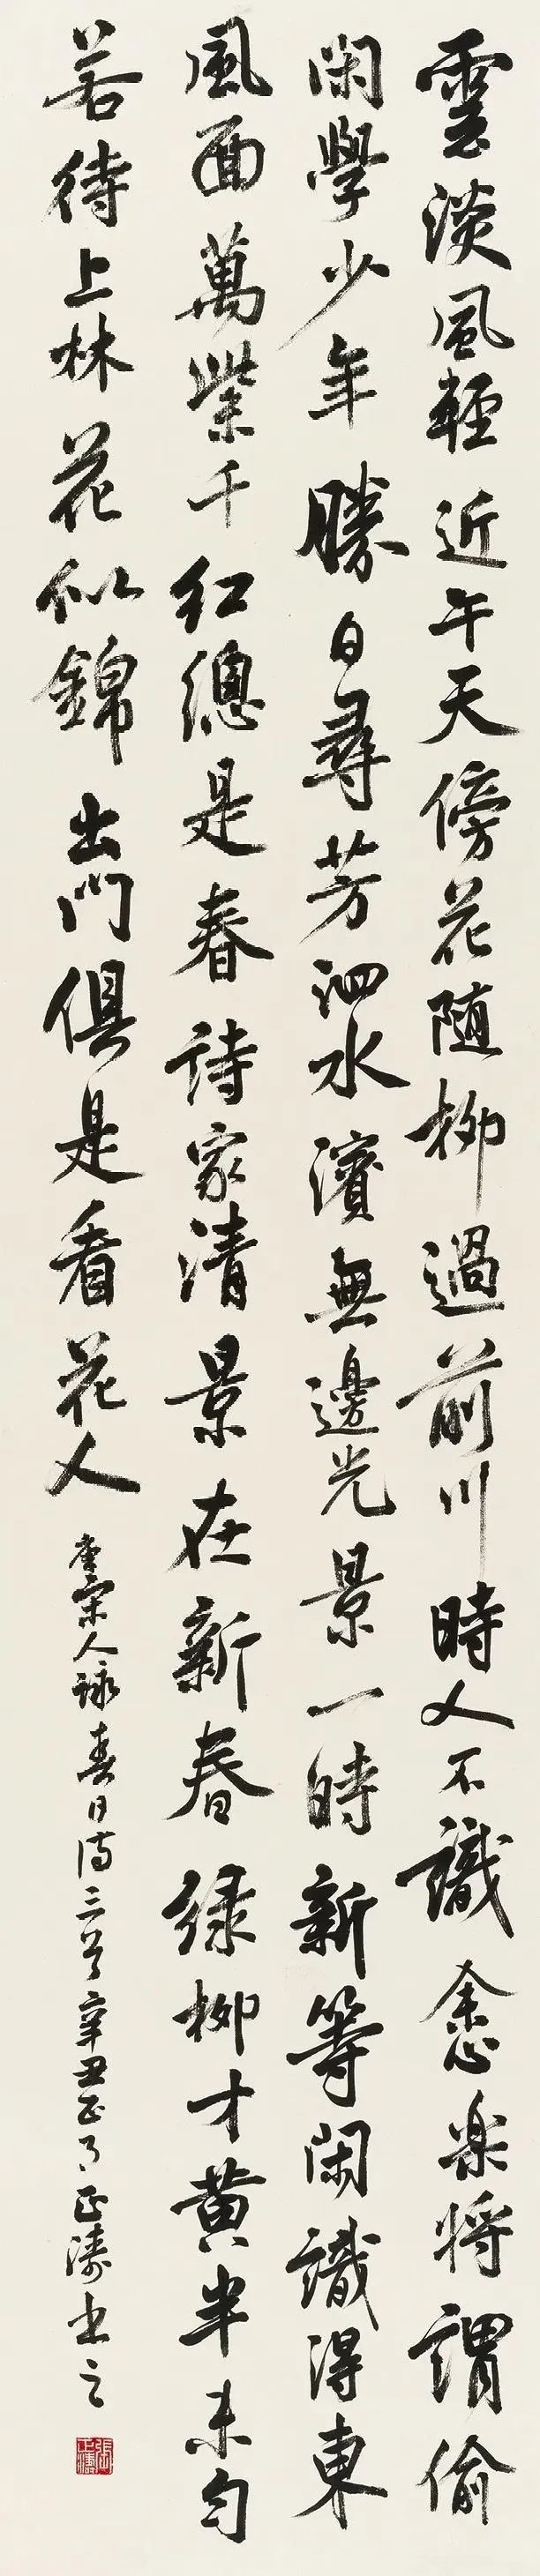 雲淡風輕近午天傍花随柳過前川時人不識余心楽将謂偷
閑學少年勝日尋芳泗水濱無邊光景一時新等閑識得東
風面萬紫千红總是春詩家清景在新春绿柳才黄半未匀
若待上林花似錦出門俱是看花人
唐宋人詠春日詩三首辛丑正月正濤书之
張正濤